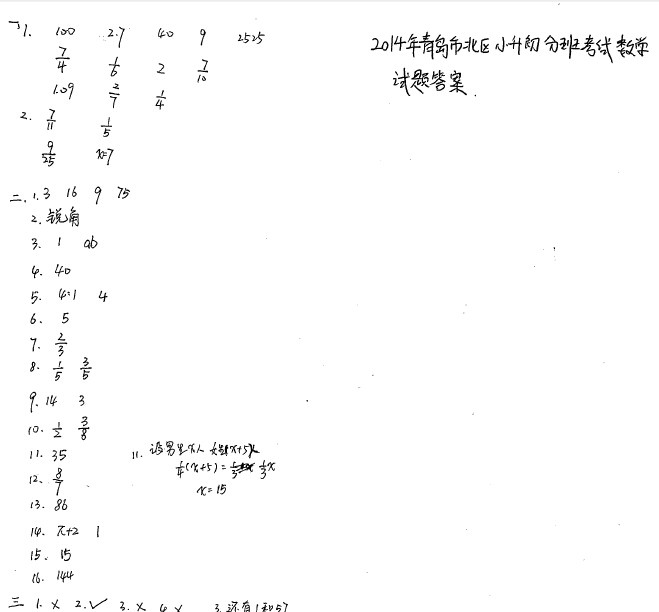 2014年青岛市北区小升初分班考试数学
试题答案
一、1. 100 2.7 40 9 2525
7/4 1/6 2 7/10
1.09 2/7 1/4
2. 7/11 1/5
9/25 x=7
二、1. 3 16 9 75
2. 锐角
3. 1 ab
4. 40
5. 4:1 4
6. 5
7. 2/3
8. 1/5 3/5
9. 14 3
10. 1/2 3/8
11. 35
12. 8/7
13. 86
14. π+2 1
15. 15
16. 144
11. 设男生x人 女生(x+5)人
1/4(x+5) = 1/3x
x=15
三 1. × 2. ✓ 3. × 4. × 3. 还有1和57